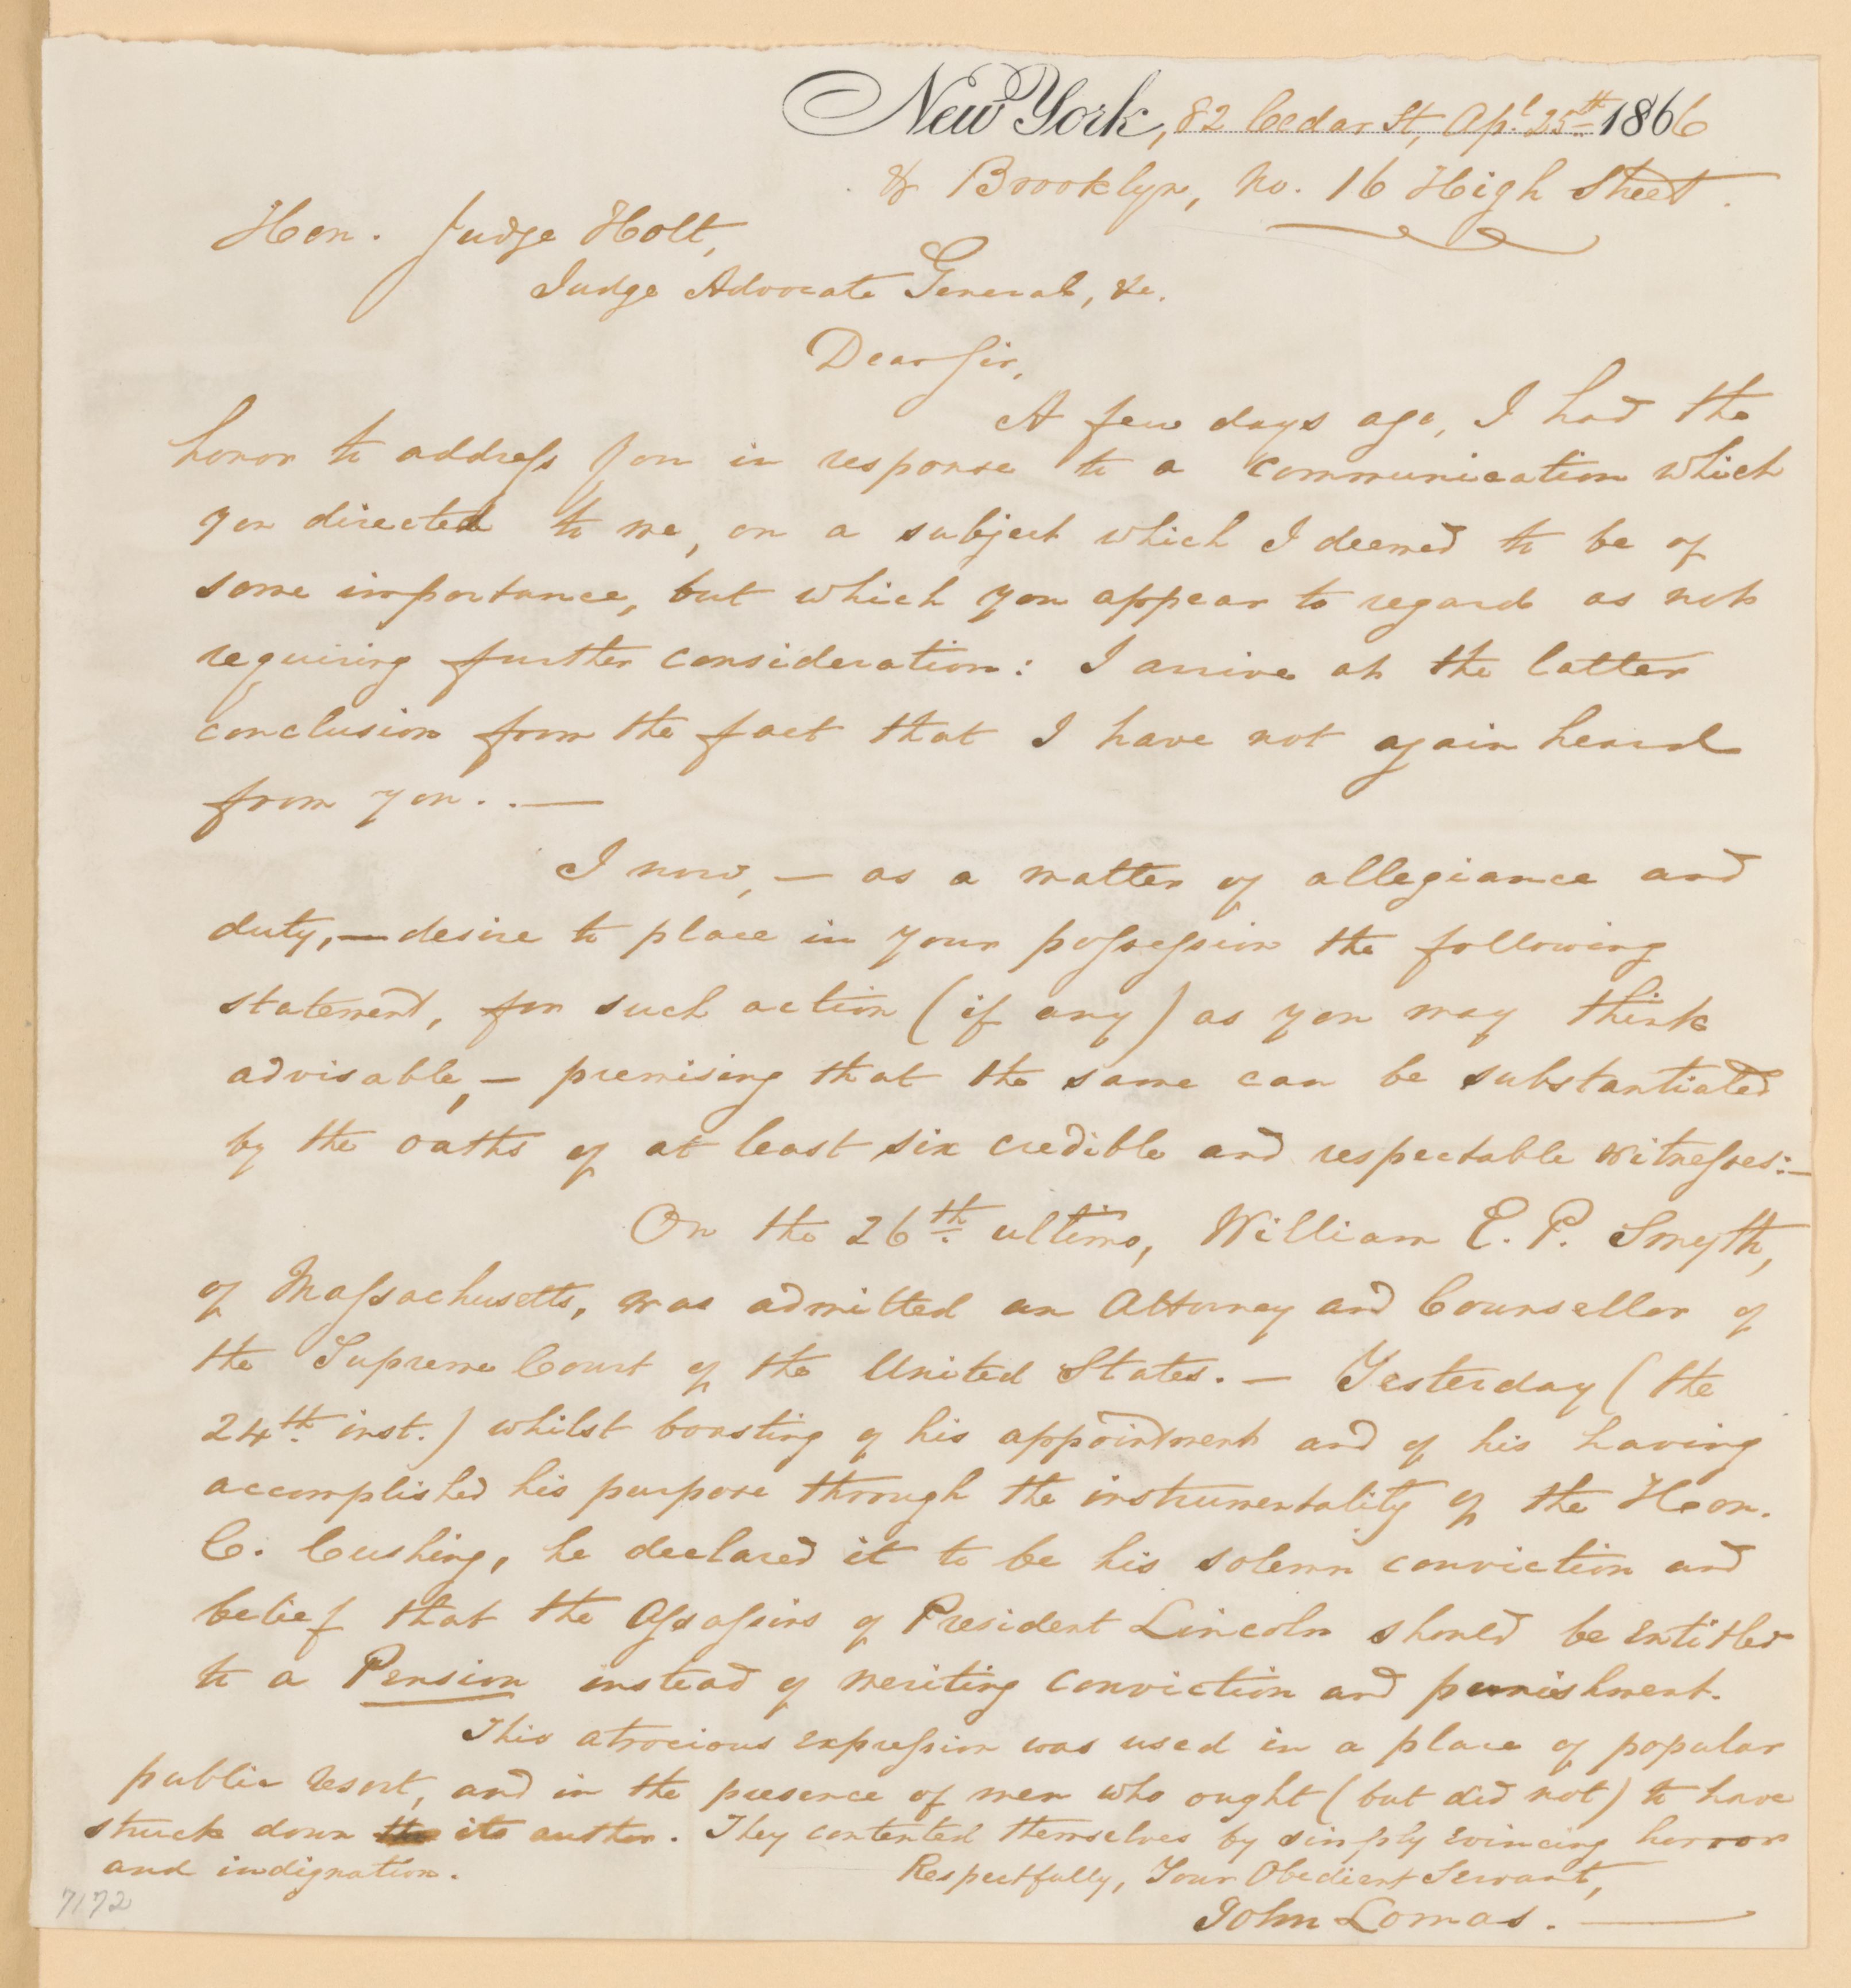 New York, 82 Cedar St, Apl. 25th 1866
& Brooklyn, No. 16 High Street.
Hon. Judge Holt,
Judge Advocate General, &c.
Dear Sir,
A few days ago, I had the
honor to address you in response to a communication which
you directed to me, on a subject which I deemed to be of
some importance, but which you appear to regard as not
requiring further consideration: I arrive at the latter
conclusion from the fact that I have not again heard
from you. . —
I now, — as a matter of allegiance and
duty, — desire to place in your possession the following
statement, for such action (if any) as you may think
advisable, — premising that the same can be substantiated
by the oaths of at least six credible and respectable witnesses: —
On the 26th ultimo, William E. P. Smyth,
of Massachusetts, was admitted an Attorney and Counsellor of
the Supreme Court of the United States. — Yesterday (the
24th inst.) whilst boasting of his appointment and of his having
accomplished his purpose through the instrumentality of the Hon.
C. Cushing, he declared it to be his solemn conviction and
belief that the Assassins of President Lincoln should be entitled
to a Pension instead of meriting conviction and punishment.
This atrocious expression was used in a place of popular
public resort, and in the presence of men who ought (but did not) to have
struck down its author. They contented themselves by simply evincing horror
and indignation.
Respectfully, Your Obedient Servant,
John Lomas. —
7172